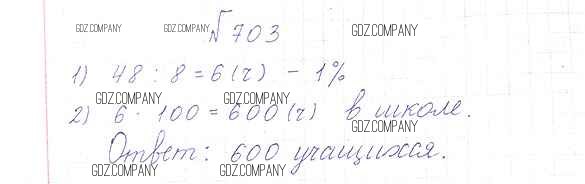 № 703
GDZ.COMPANY GDZ.COMPANY GDZ.COMPANY
1) 48 : 8 = 6 (ч) - 1%
GDZ.COMPANY GDZ.COMPANY
2) 6 · 100 = 600 (ч) в школе.
GDZ.COMPANY
Ответ: 600 учащихся.
GDZ.COMPANY GDZ.COMPANY GDZ.COMPANY